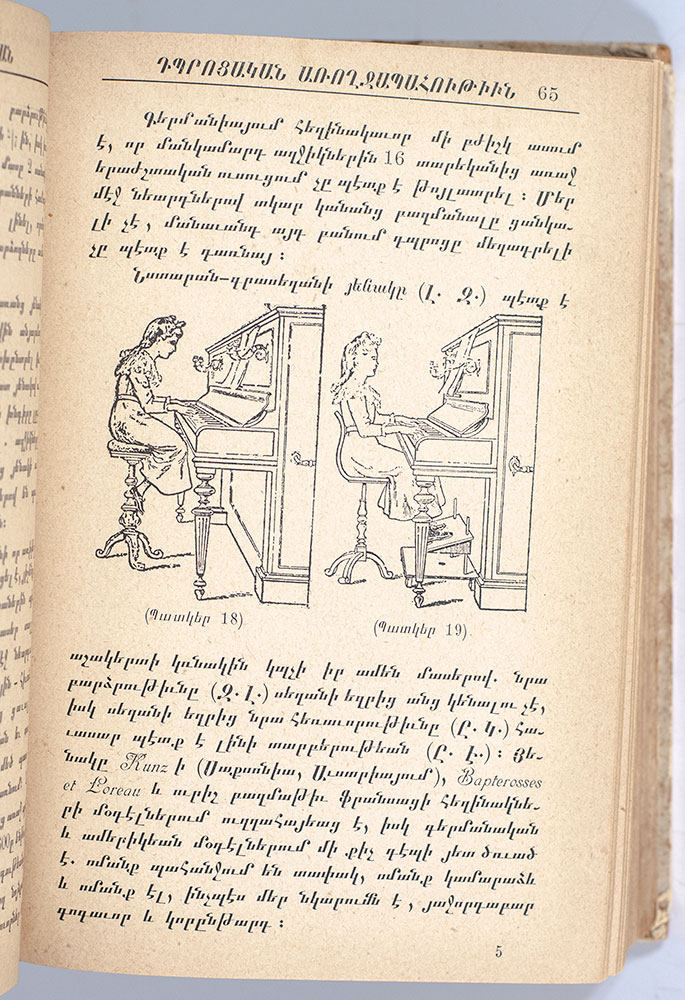 ԴՊՐՈՑԱԿԱՆ ԱՌՈՂՋԱՊԱՀՈՒԹԻՒՆ 65
Գերմանիայում հեղինակաւոր մի բժիշկ ասում
է, որ մանկամարդ աղջիկներին 16 տարեկանից առաջ
երաժշտական ուսուցում չը պէտք է թոյլատրել։ Մեր
մէջ նեարդներով տկար կանանց բազմանալը ցանկա-
լի չէ, մանաւանդ այդ բանում դպրոցը մեղադրելի
չը պէտք է դառնայ։
Նստարան-գրասեղանի յենակը (Լ. Զ.) պէտք է
(Պատկեր 18)
(Պատկեր 19)
աշակերտի կռնակին կպչի իր ամեն մասերով. նրա
բարձրութիւնը (Զ. Լ.) սեղանի եզրից անց կենալու չէ,
իսկ սեղանի եզրից նրա հեռաւորութիւնը (Ը. Կ.) հա-
ւասար պէտք է լինի տարբերութեան (Ը. Լ.)։ Յե-
նակը Kunz ի (Սաքսոնիա, Աւստրիայում), Bapterosses
et Loreau և ուրիշ բազմաթիւ ֆրանսացի հեղինակնե-
րի մօդէլներում ուղղահայեաց է, իսկ գերմանական
և ամերիկեան մօդէլներում մի քիչ դէպի յետ ծռուած
է. ոմանք պահանջում են տափակ, ոմանք կամարաձև
և ոմանք էլ, ինչպէս մեր նկարումն է, յաջորդաբար
գոգաւոր և կորընթարդ։
5